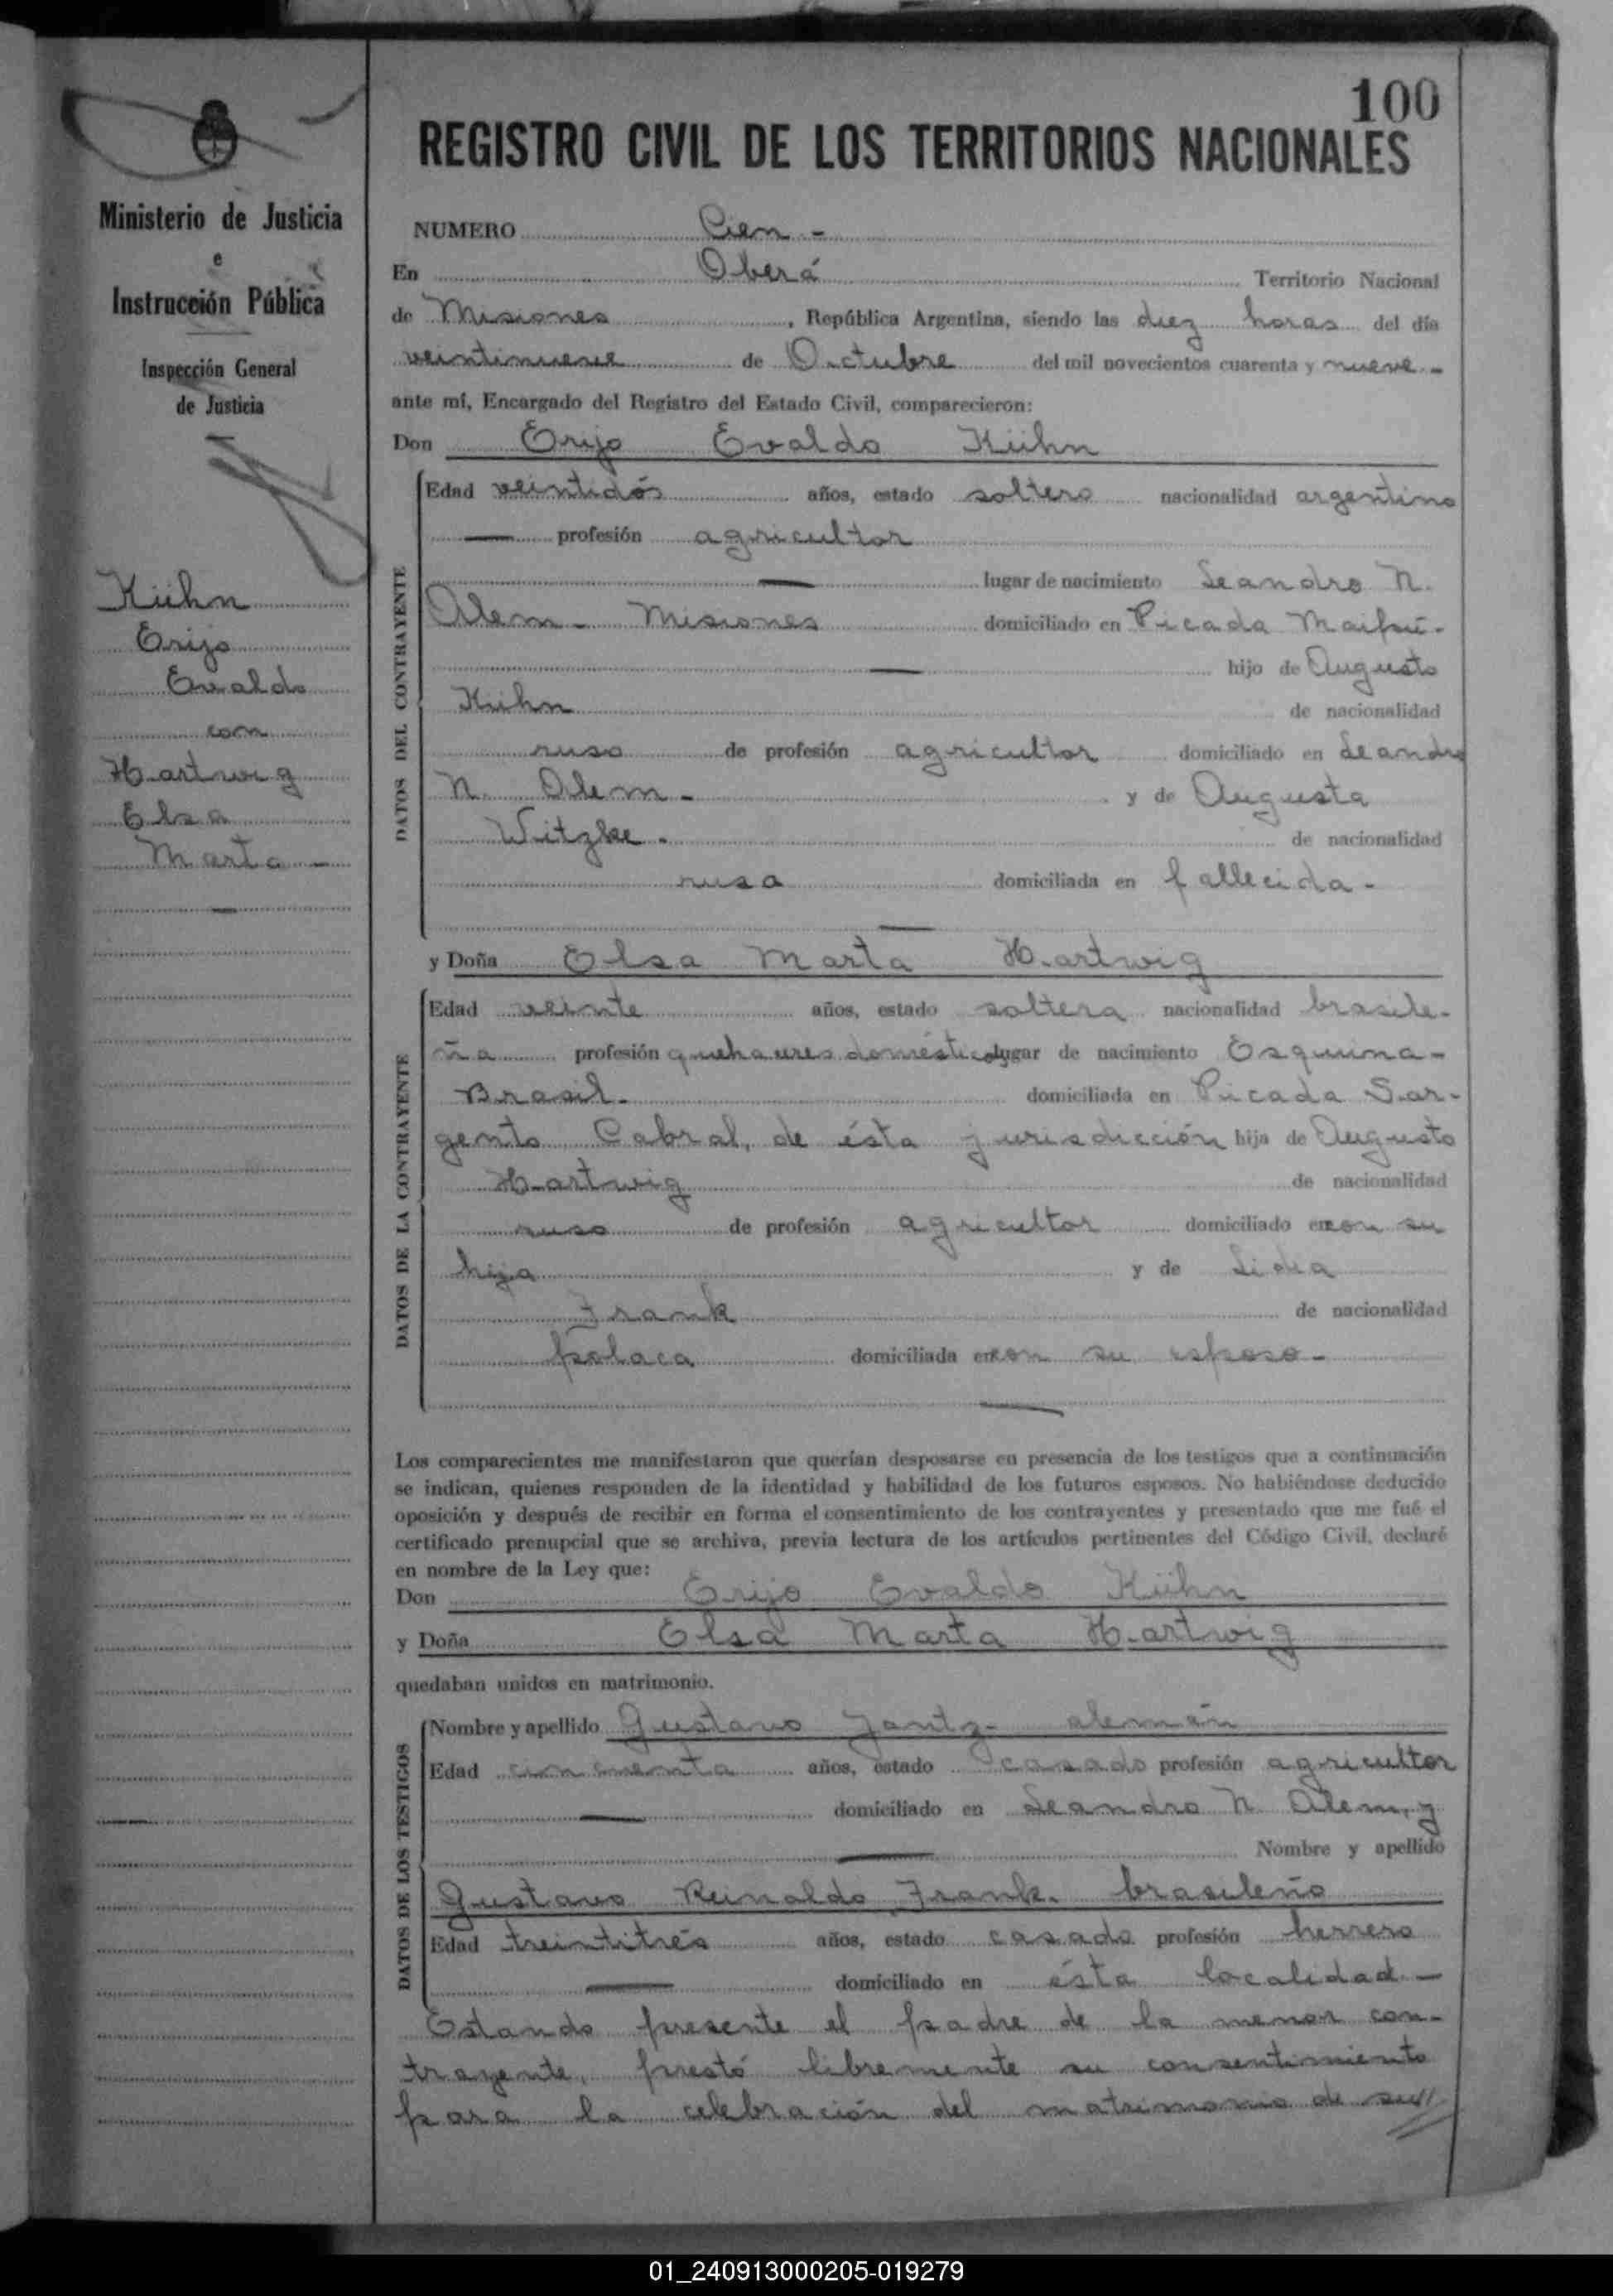 100
REGISTRO CIVIL DE LOS TERRITORIOS NACIONALES
Ministerio de Justicia
e
Instrucción Pública
Inspección General
de Justicia
Kühn
Erijo
Evaldo
con
Hartwig
Elsa
Marta -
NUMERO Cien -
En Oberá Territorio Nacional
de Misiones, República Argentina, siendo las diez horas del día
veintinueve de Octubre del mil novecientos cuarenta y nueve -
ante mí, Encargado del Registro del Estado Civil, comparecieron:
Don Erijo Evaldo Kühn
DATOS DEL CONTRAYENTE
Edad veintidós años, estado soltero nacionalidad argentino
— profesión agricultor
— lugar de nacimiento Leandro N.
Alem - Misiones domiciliado en Picada Maipú -
— hijo de Augusto
Kühn de nacionalidad
ruso de profesión agricultor domiciliado en Leandro
N. Alem - y de Augusta
Witzke - de nacionalidad
rusa domiciliada en fallecida -
y Doña Elsa Marta Hartwig
DATOS DE LA CONTRAYENTE
Edad veinte años, estado soltera nacionalidad brasile-
ña profesión quehaceres domésticos lugar de nacimiento Esquina -
Brasil - domiciliada en Picada Sar-
gento Cabral, de ésta jurisdicción hija de Augusto
Hartwig de nacionalidad
ruso de profesión agricultor domiciliado en con su
hija y de Lidia
Frank de nacionalidad
polaca domiciliada en con su esposo -
Los comparecientes me manifestaron que querían desposarse en presencia de los testigos que a continuación
se indican, quienes responden de la identidad y habilidad de los futuros esposos. No habiéndose deducido
oposición y después de recibir en forma el consentimiento de los contrayentes y presentado que me fué el
certificado prenupcial que se archiva, previa lectura de los artículos pertinentes del Código Civil, declaré
en nombre de la Ley que:
Don Erijo Evaldo Kühn
y Doña Elsa Marta Hartwig
quedaban unidos en matrimonio.
DATOS DE LOS TESTIGOS
Nombre y apellido Gustavo Jantz - alemán
Edad cincuenta años, estado casado profesión agricultor
— domiciliado en Leandro N. Alem, y
— Nombre y apellido
Gustavo Reinaldo Frank - brasileño
Edad treintitrés años, estado casado profesión herrero
— domiciliado en ésta localidad -
Estando presente el padre de la menor con-
trayente, prestó libremente su consentimiento
para la celebración del matrimonio de su//
01_240913000205-019279